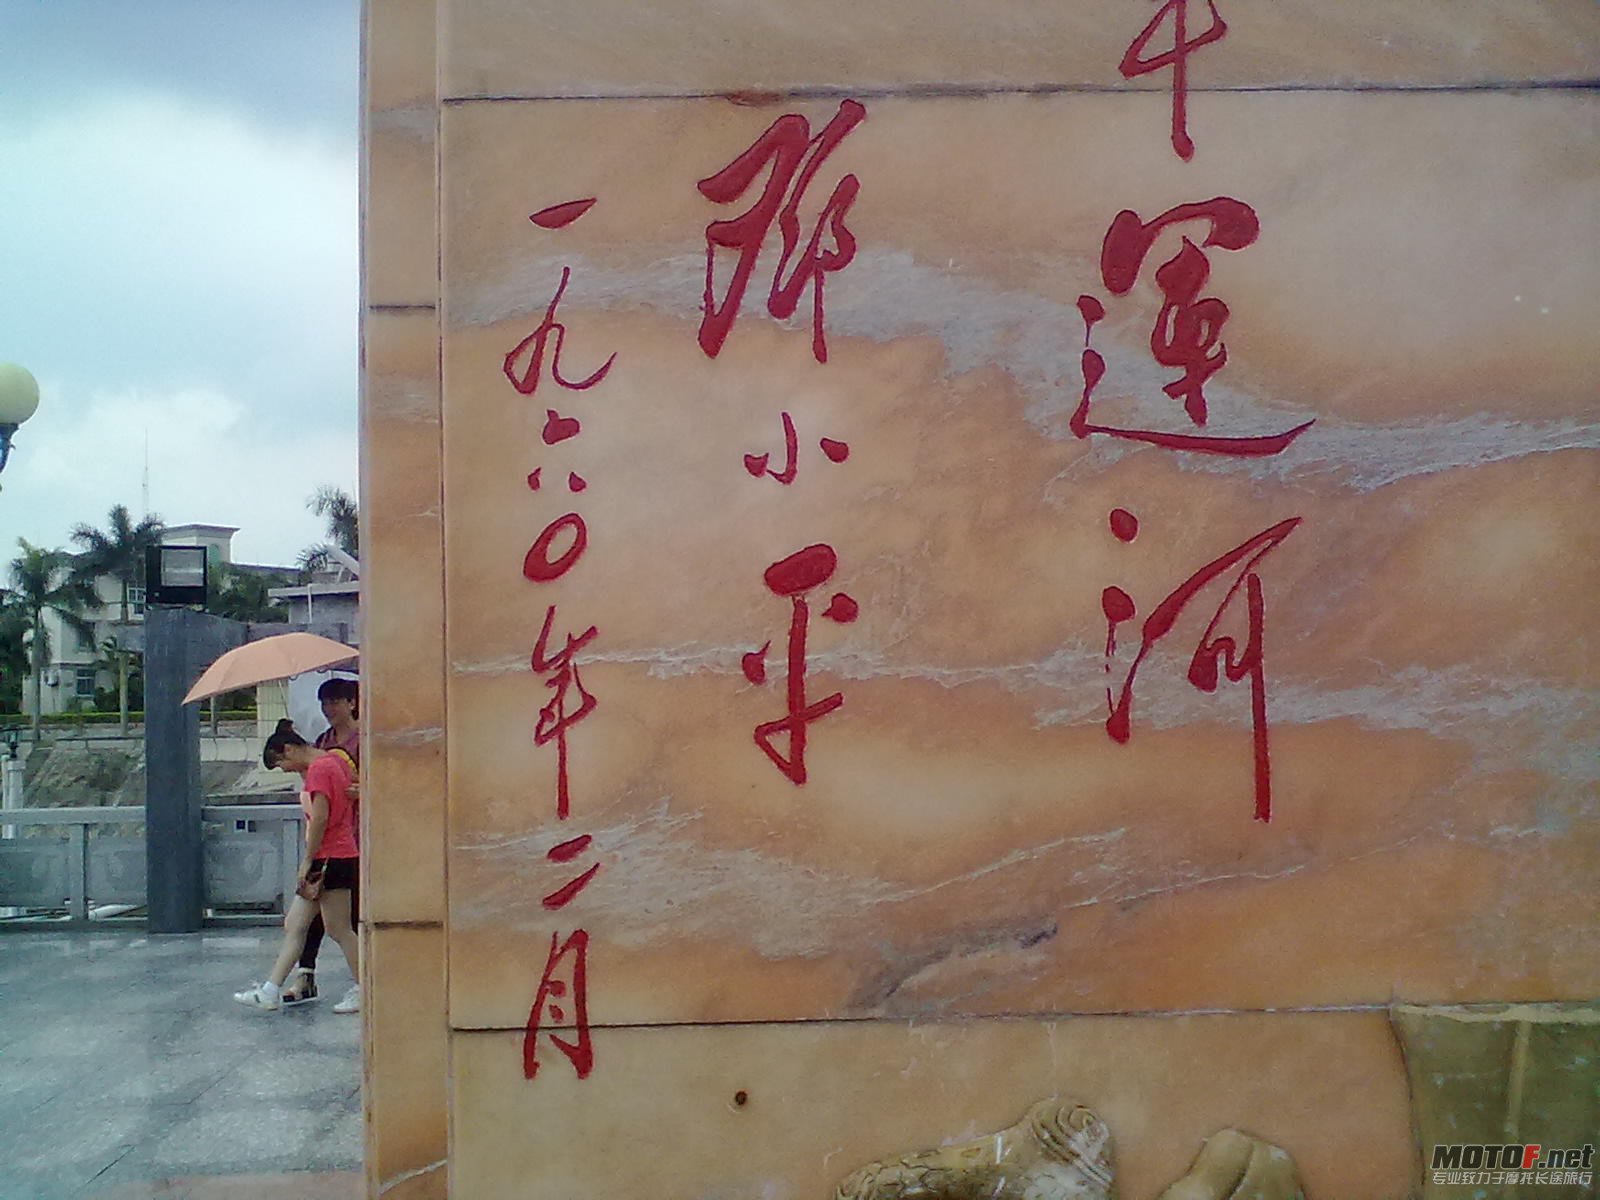 運河
鄧小平
一九六〇年二月
MOTOF.net
专业致力于摩托长途旅行